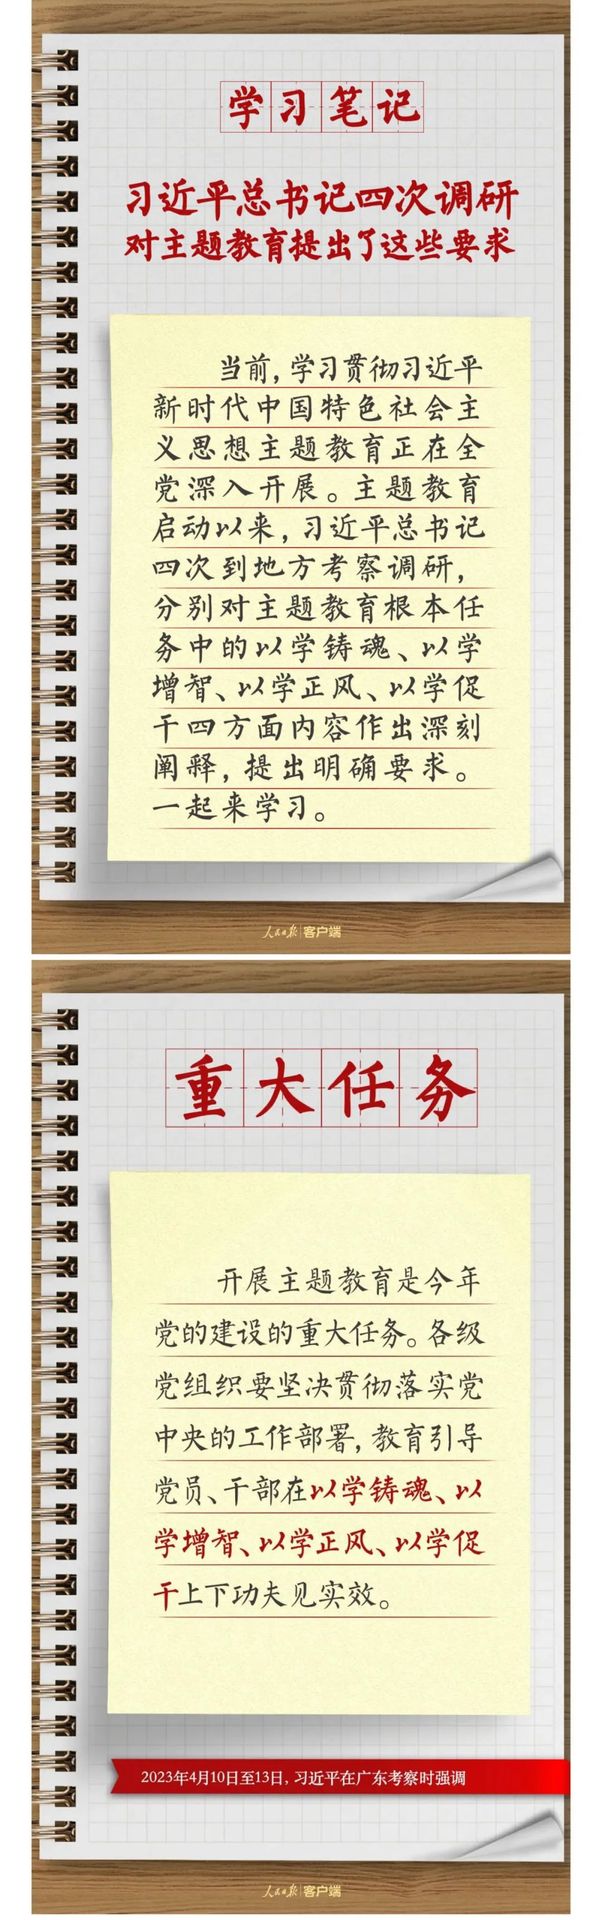 学习笔记
习近平总书记四次调研
对主题教育提出了这些要求
当前，学习贯彻习近平
新时代中国特色社会主
义思想主题教育正在全
党深入开展。主题教育
启动以来，习近平总书记
四次到地方考察调研，
分别对主题教育根本任
务中的以学铸魂、以学
增智、以学正风、以学促
干四方面内容作出深刻
阐释，提出明确要求。
一起来学习。
人民日报|客户端
重大任务
开展主题教育是今年
党的建设的重大任务。各级
党组织要坚决贯彻落实党
中央的工作部署，教育引导
党员、干部在以学铸魂、以
学增智、以学正风、以学促
干上下功夫见实效。
2023年4月10日至13日，习近平在广东考察时强调
人民日报|客户端